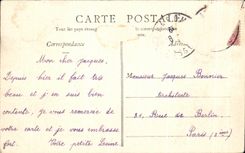 CARTE POSTALE
Tous les pays étrangers
Correspondance
Mon cher Jacques,
Depuis hier il fait très
beau et je en suis bien
contente, je vous remercie de
votre carte et je vous embrasse
fort. Votre petite
Monsieur Jacques
Architecte
Rue de Berlin
Paris